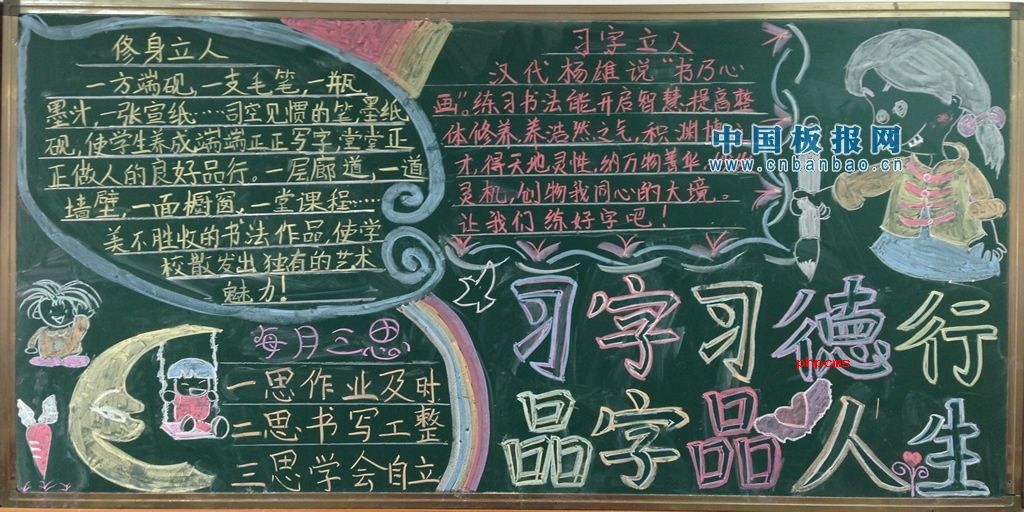 修身立人
一方端砚，一支毛笔，一瓶
墨汁，一张宣纸……司空见惯的笔墨纸
砚，使学生养成端端正正写字，堂堂正
正做人的良好品行。一层廊道，一道
墙壁，一面橱窗，一堂课程……
美不胜收的书法作品，使学
校散发出独有的艺术
魅力！
习字立人
汉代杨雄说“书乃心
画”。练习书法能开启智慧，提高整
体修养，养浩然之气，积渊博
才，得天地灵性，纳万物菁华，
灵机，创物我同心的大境。
让我们练好字吧！
中国板报网
www.cnbanbao.cn
每月三思
一思作业及时
二思书写工整
三思学会自立
习字习德行
phpcms
品字品人生